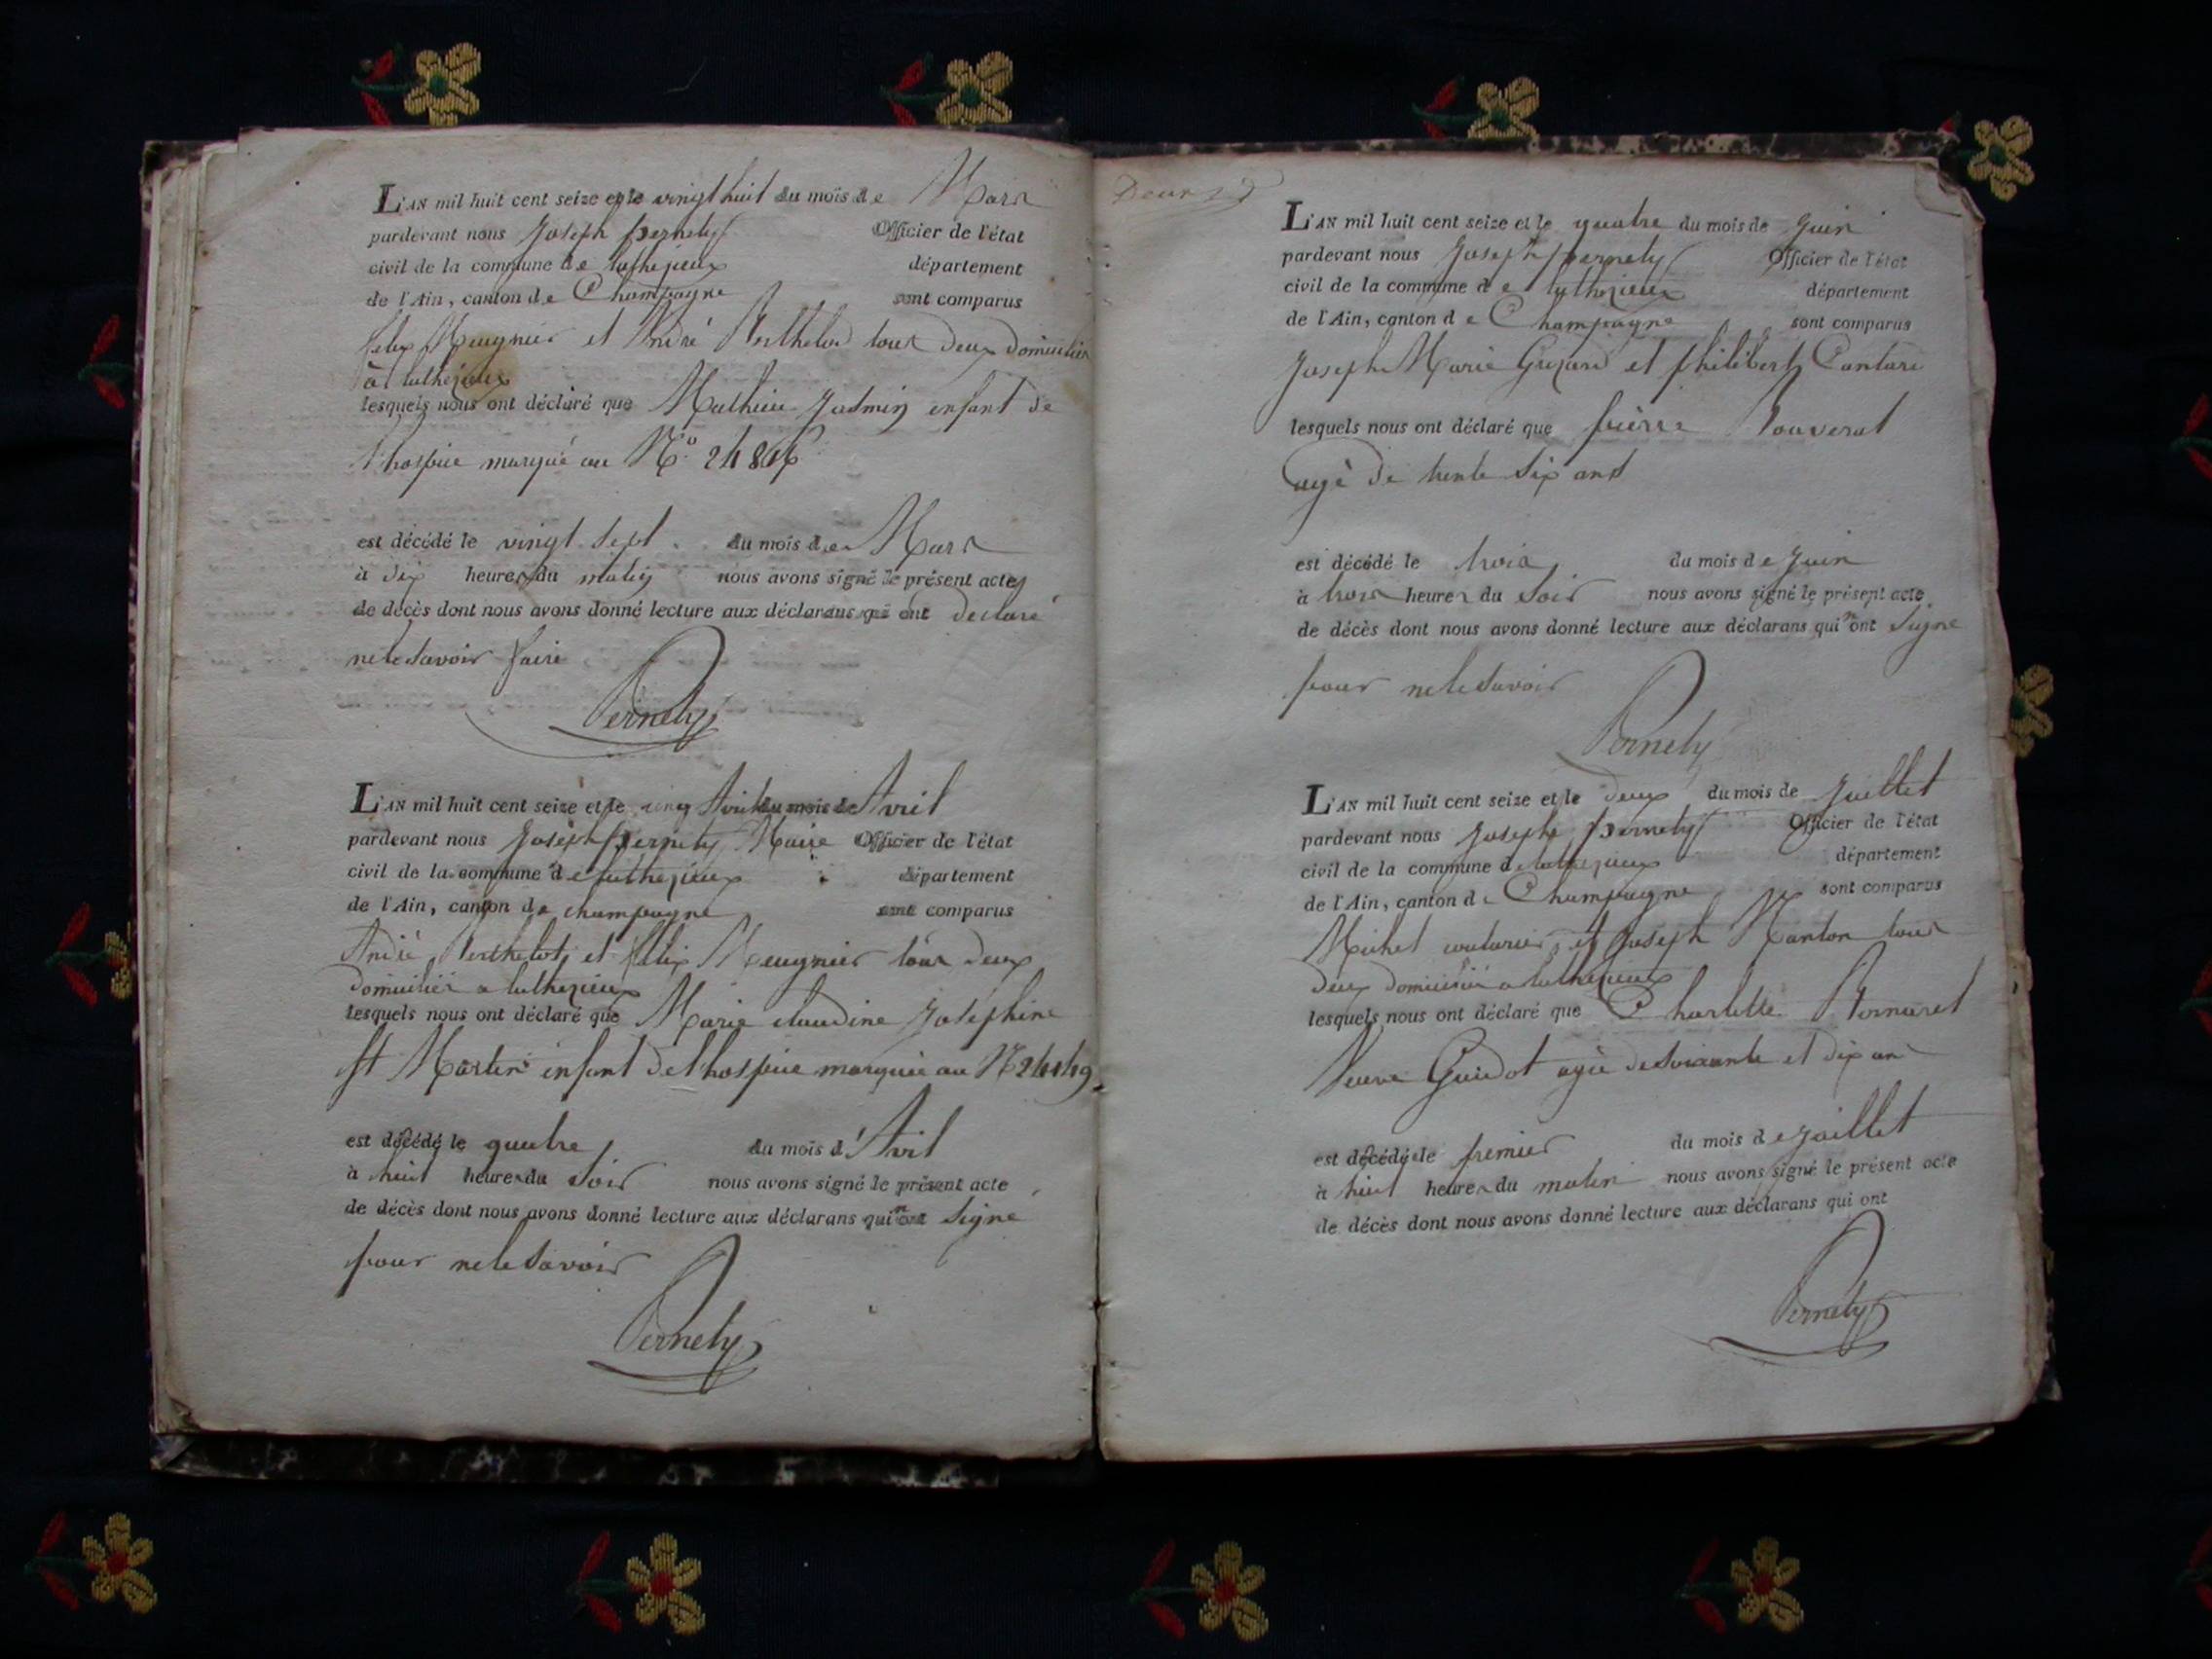 L'AN mil huit cent seize et le vingt huit du mois de Mars
pardevant nous Joseph pernety Officier de l'état
civil de la commune de luthezieux département
de l'Ain, canton de Champagne sont comparus
felix Meugnier et André Berthelot tous deux domicilies
à luthezieux
lesquels nous ont déclaré que Mathieu Jasmin enfant de
l'hospice marqué au No.
est décédé le vingt Sept du mois de Mars
à dix heures du matin nous avons signé le présent acte
de décès dont nous avons donné lecture aux déclarans qui ont declaré
ne le Savoir faire
Pernety
L'AN mil huit cent seize et le cinq Avril du mois de Avril
pardevant nous Joseph pernety Maire Officier de l'état
civil de la commune de luthezieux département
de l'Ain, canton de champagne sont comparus
André Berthelot et felix Meugnier tous deux
domicilies a luthezieux
lesquels nous ont déclaré que Marie claudine Josephine
St Martin enfant de l'hospice marquée au N
est décédé le quatre du mois d'Avril
à huit heures du Soir nous avons signé le présent acte
de décès dont nous avons donné lecture aux déclarans qui n'ont Signé
pour ne le Savoir
Pernety
L'AN mil huit cent seize et le quatre du mois de Juin
pardevant nous Joseph pernety Officier de l'état
civil de la commune de luthezieux département
de l'Ain, canton de Champagne sont comparus
Joseph Marie Guzard et philibert
lesquels nous ont déclaré que pierre Bouverat
agé de trente Six ans
est décédé le trois du mois de Juin
à trois heures du Soir nous avons signé le présent acte
de décès dont nous avons donné lecture aux déclarans qui n'ont Signe
pour ne le Savoir
Pernety
L'AN mil huit cent seize et le deux du mois de Juillet
pardevant nous Joseph pernety Officier de l'état
civil de la commune de luthezieux département
de l'Ain, canton de Champagne sont comparus
Michel couturier et Joseph Manton tous
deux domicilié a luthezieux
lesquels nous ont déclaré que Charlotte
Veuve Guidot agée de Soixante et dix an
est décédé le premier du mois de Juillet
à huit heures du matin nous avons signé le présent acte
de décès dont nous avons donné lecture aux déclarans qui ont
Pernety